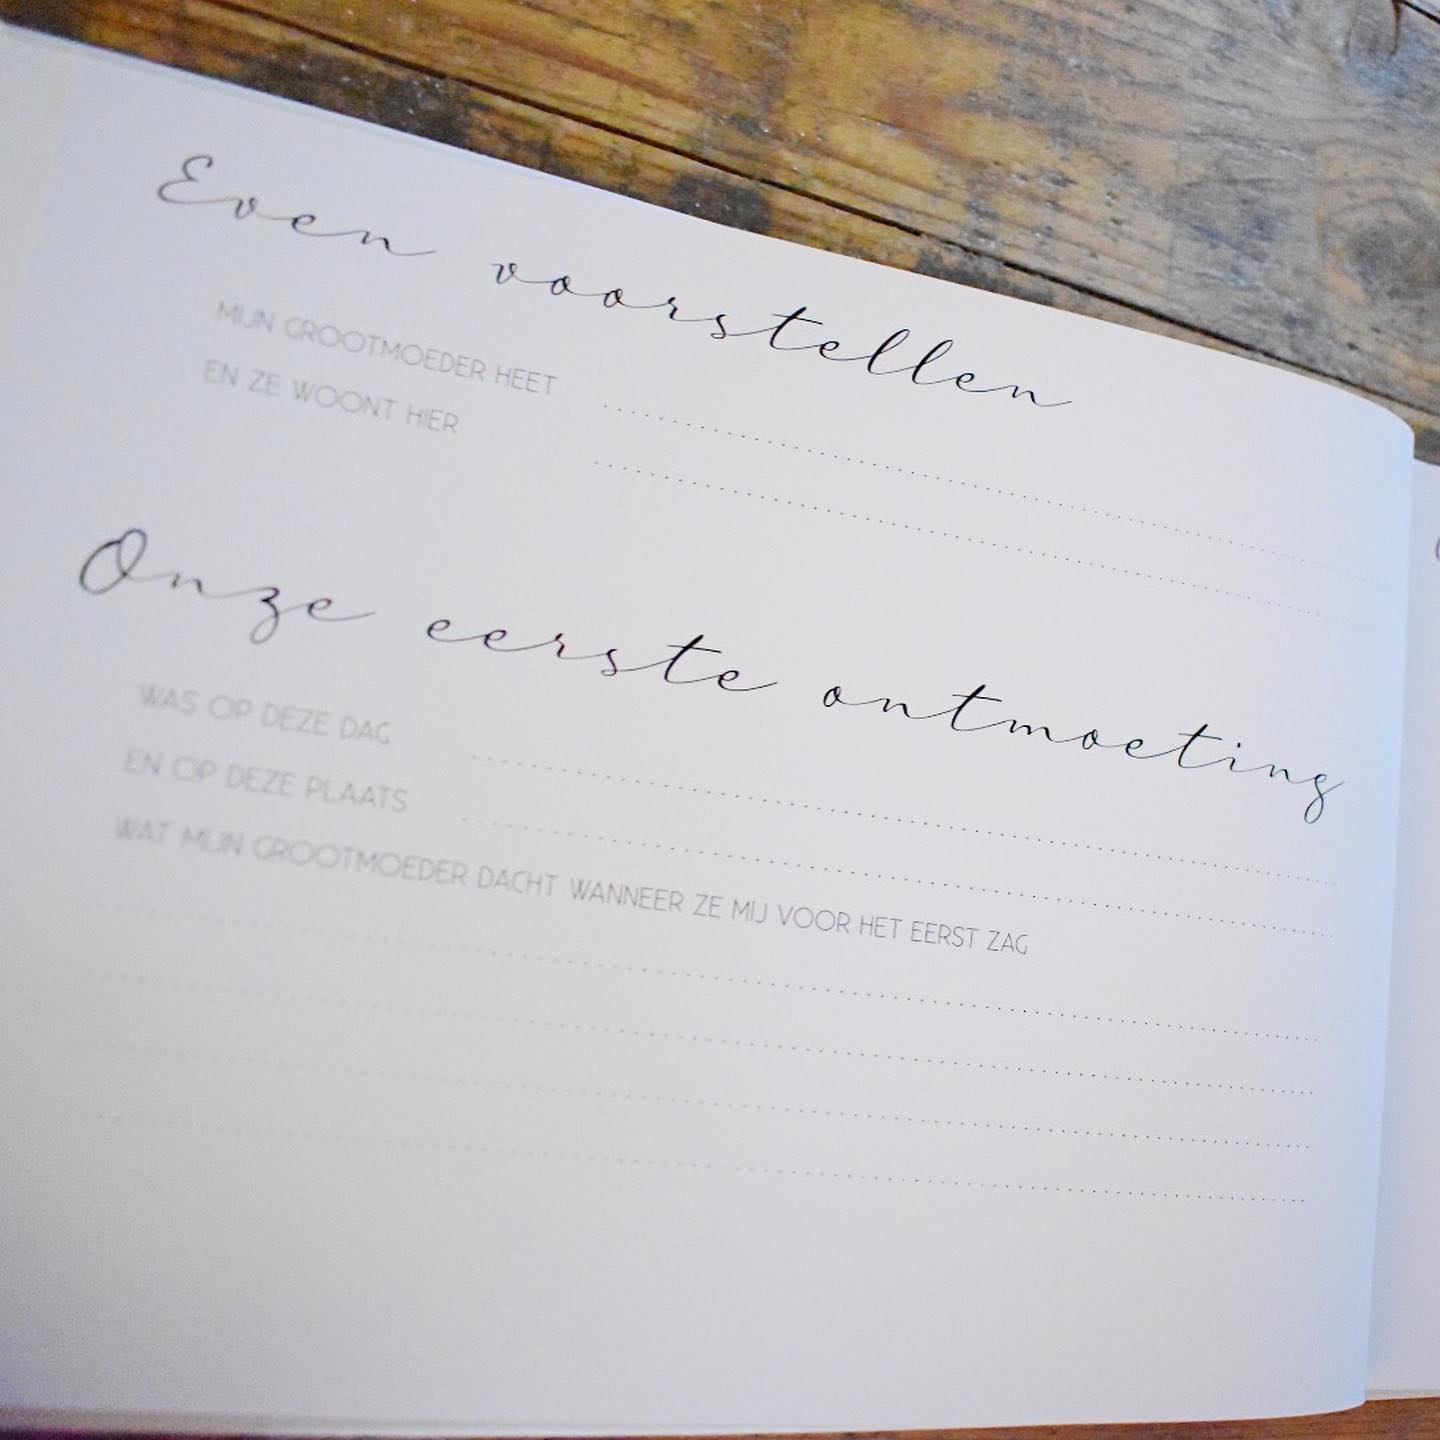 Even voorstellen
MIJN GROOTMOEDER HEET
EN ZE WOONT HIER
Onze eerste ontmoeting
WAS OP DEZE DAG
EN OP DEZE PLAATS
WAT MIJN GROOTMOEDER DACHT WANNEER ZE MIJ VOOR HET EERST ZAG